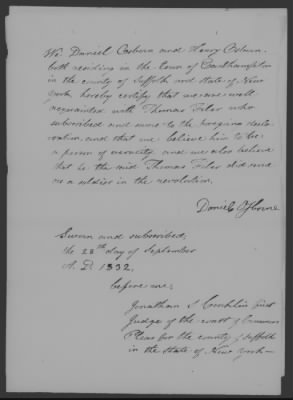 We Daniel Osburn and Henry Osburn
both residing in the town of Southhampton
in the county of Suffolk and state of New
york, hereby certify that we are well
acquainted with Thomas Filer who
subscribed and swore to the foregoing decla-
ration, and that we believe him to be
a person of veracity, and we also believe
that he the said Thomas Filer did serve
as a soldier in the revolution.
Daniel Osborne
Sworn and subscribed,
the 28th day of September
A. D. 1832.
before me,
Jonathan S Conklin first
Judge of the court of Common
Pleas for the county of Suffolk
in the state of New York—